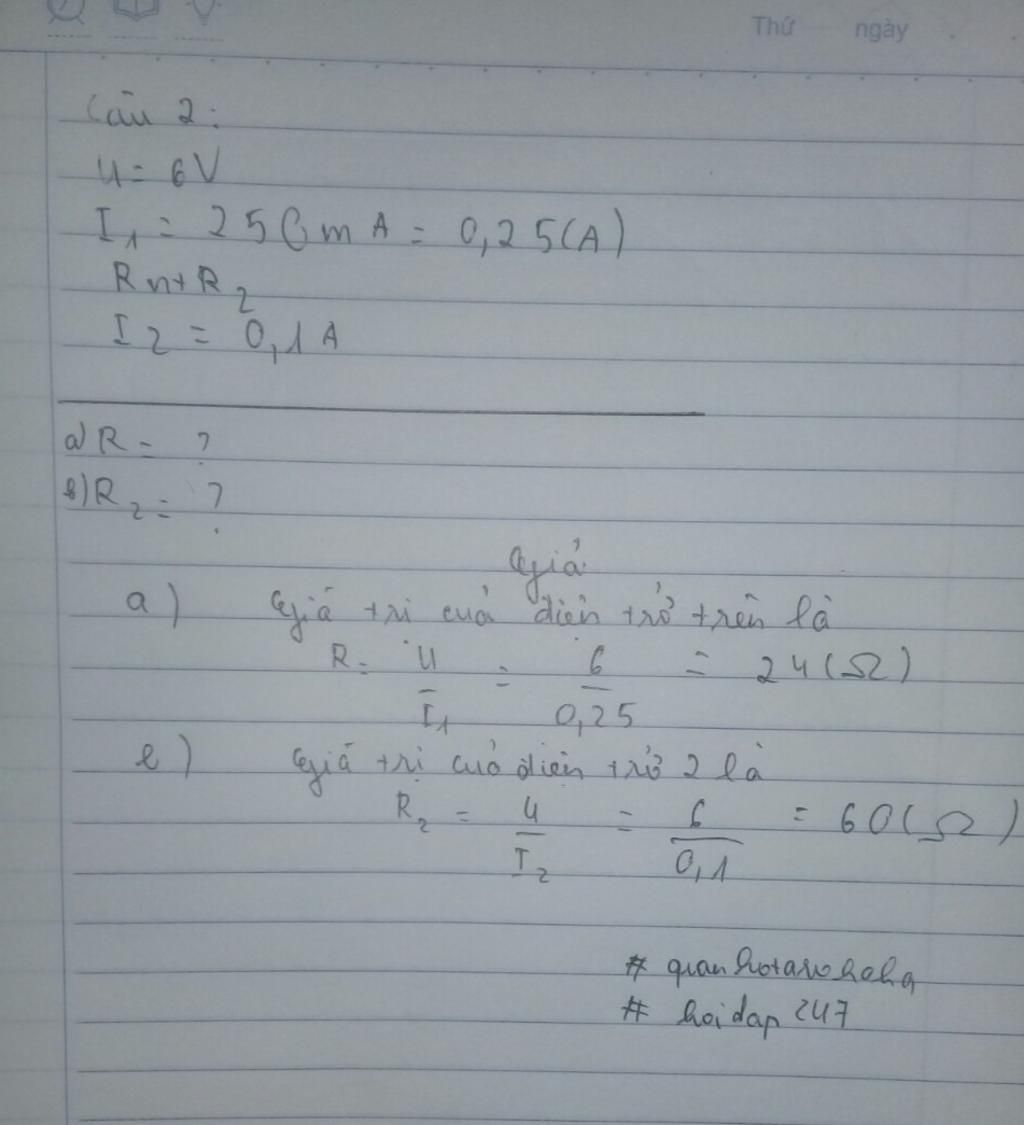 Thứ ngày
Câu 2:
U = 6V
I₁ = 250mA = 0,25(A)
R nt R₂
I₂ = 0,1A
a) R = ?
b) R₂ = ?
Giải
a) Giá trị của điện trở trên là
R = U/I₁ = 6/0,25 = 24(Ω)
b) Giá trị của điện trở 2 là
R₂ = U/I₂ = 6/0,1 = 60(Ω)
# hoidap247